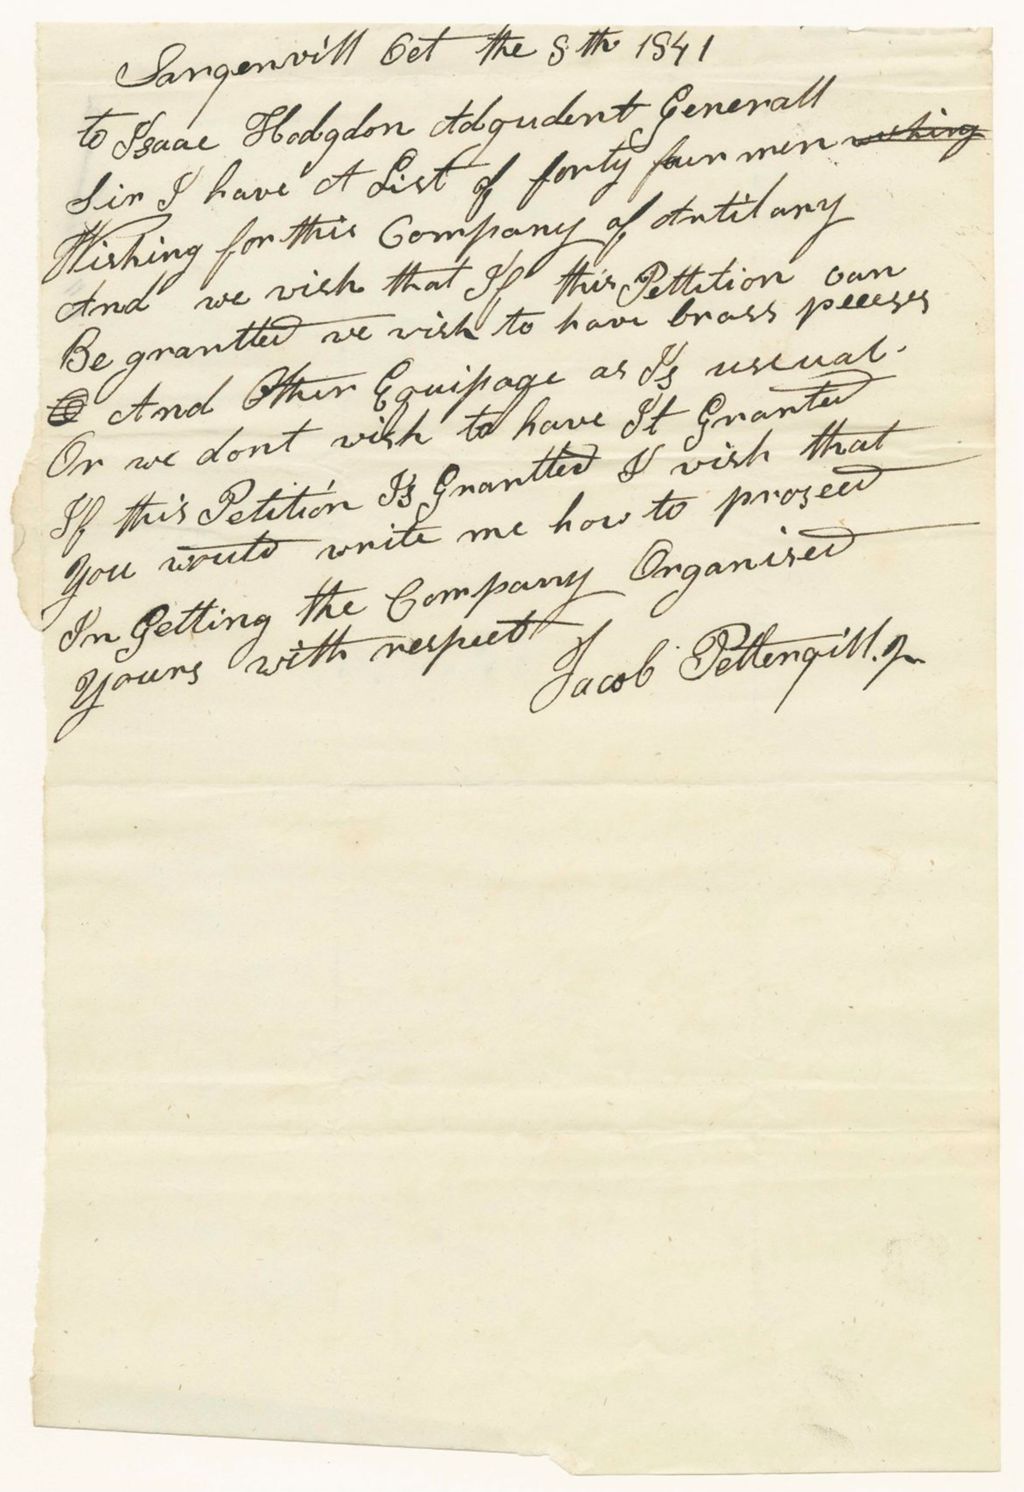 Sangervill Oct the 8th 1841
to Isaac Hodgdon Adgudent Generall
Sir I have A List of forty four men wishing
Wishing for this Company of Antilary
And we wish that If this Pettition can
Be grantted we wish to have brass peeeses
And Other Equipage as Is usual.
Or we dont wish to have It Granted
If this Petition Is Grantted I wish that
You would write me how to proseed
In Getting the Company Organised
Yours with respect
Jacob Pettengill. Jr